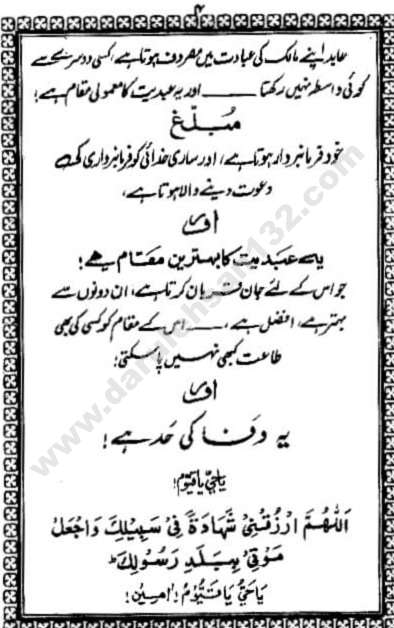 ۴
عابد اپنے مالک کی عبادت میں مصروف ہوتا ہے، کسی دوسرے سے
کوئی واسطہ نہیں رکھتا ـــــــ اور یہ عبدیت کا معمولی مقام ہے!
مبلّغ
خود فرمانبردار ہوتا ہے، اور ساری خدائی کو فرمانبرداری کی
دعوت دینے والا ہوتا ہے،
اور
یہ عبدیت کا بہترین مقام ہے!
جو اس کے لئے جان قربان کرتا ہے، ان دونوں سے
بہتر ہے، افضل ہے، ـــــ اس کے مقام کو کسی کی بھی
طاعت کبھی نہیں پا سکتی!
اور
یہ وفا کی حد ہے!
یا حیّ یا قیّوم!
اَللّٰهُمَّ ارْزُقْنِیْ شَهَادَةً فِیْ سَبِیْلِكَ وَاجْعَلْ
مَوْتِیْ بِبَلَدِ رَسُوْلِكَ ط
یَا حَیُّ یَا قَیُّوْمُ! اٰمِیْن!
www.darulehsan132.com